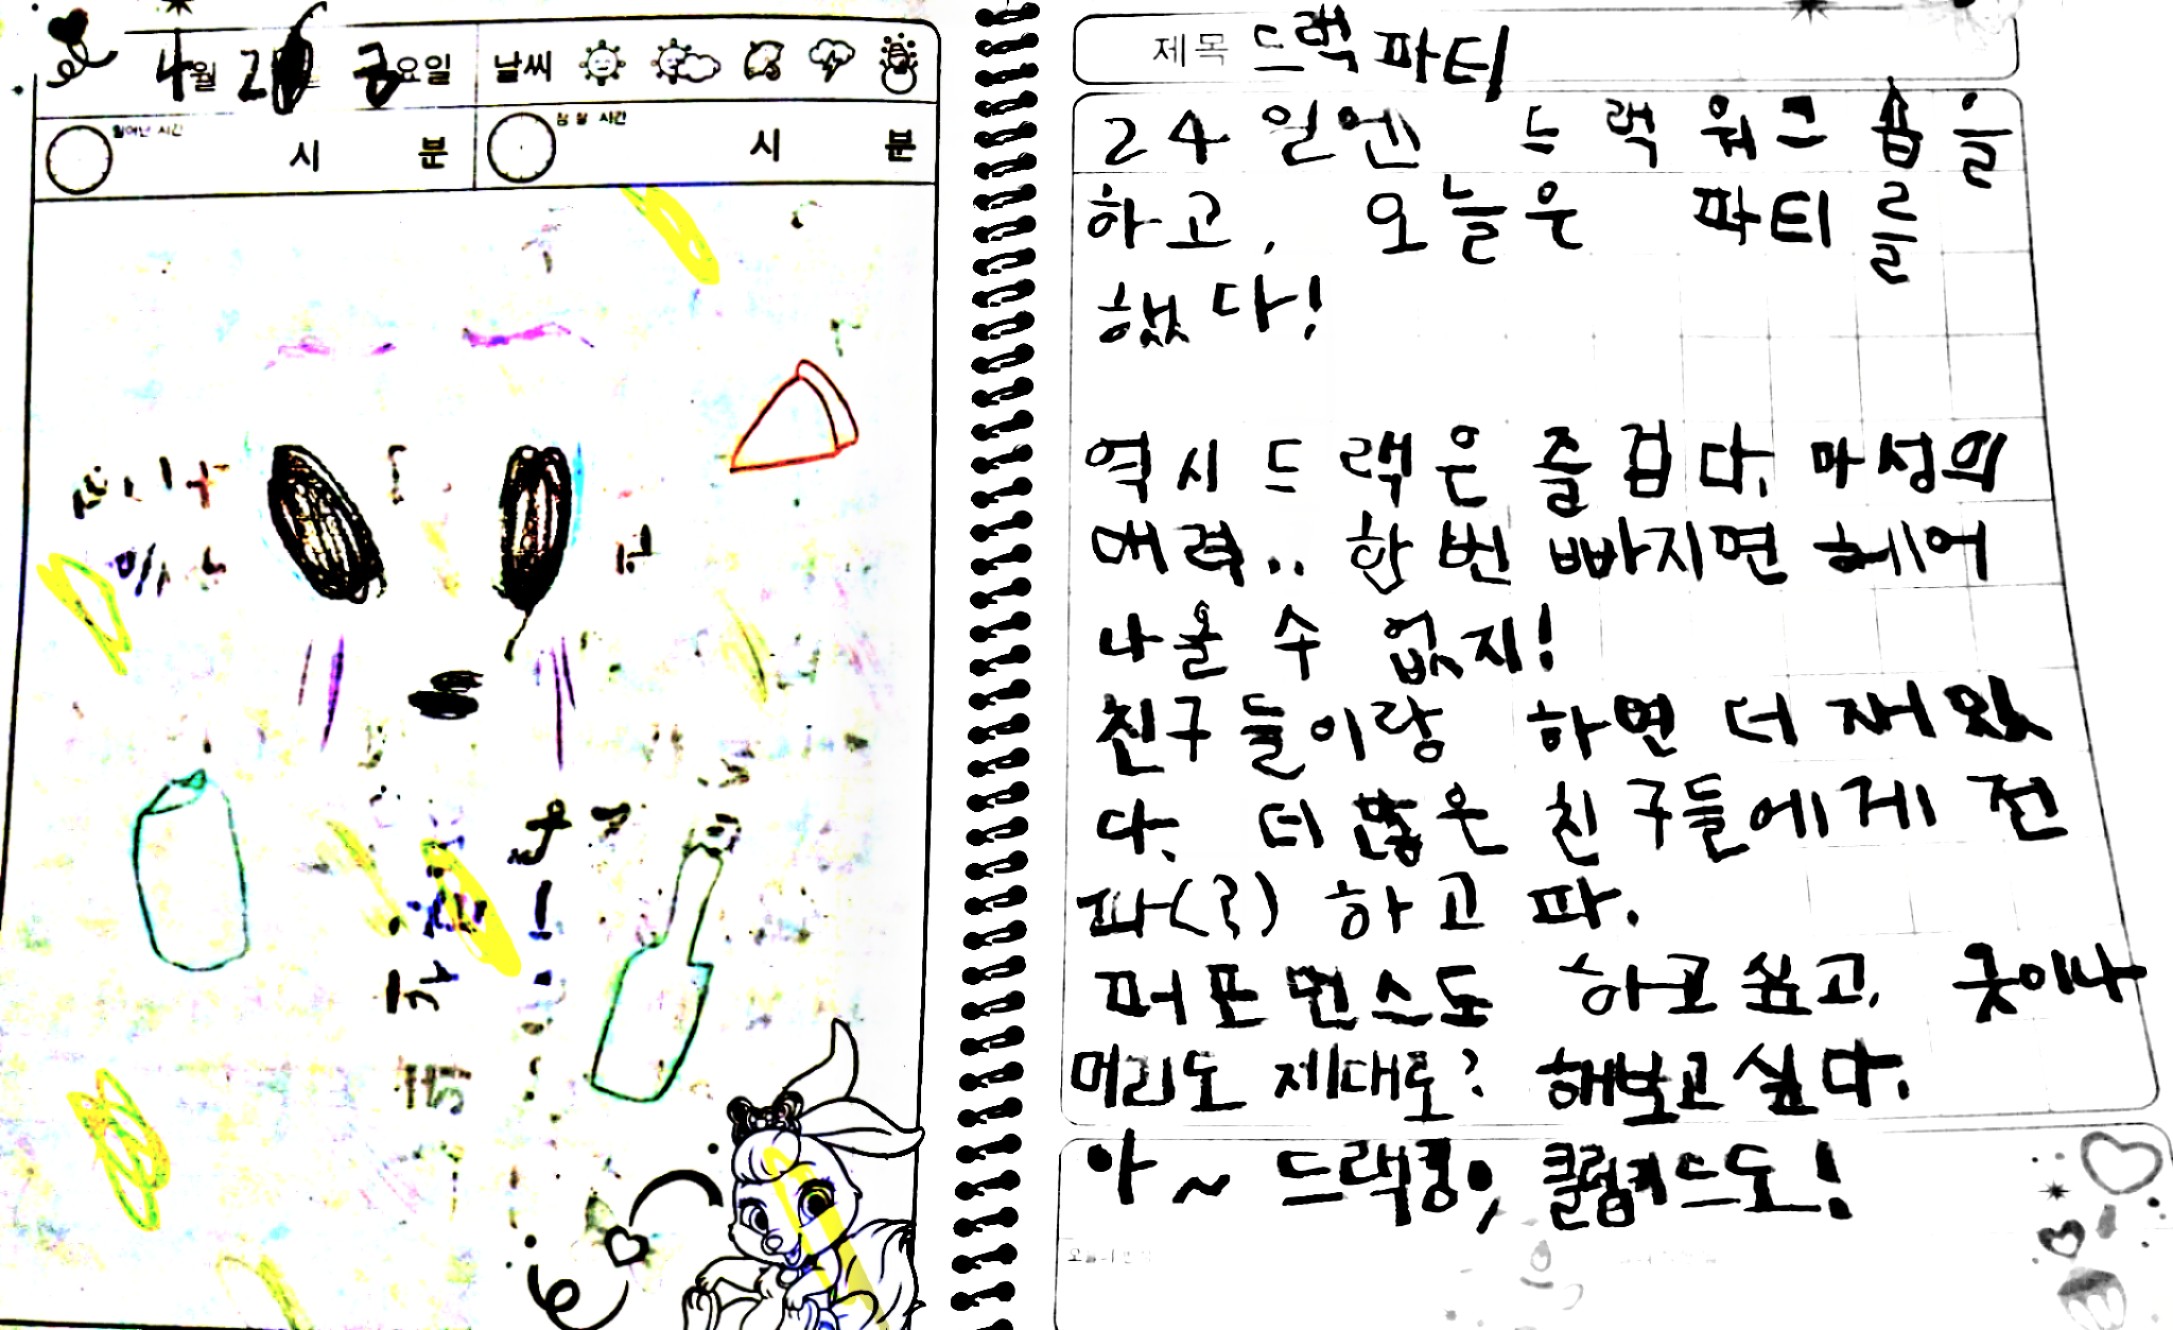 4월 2 금요일 날씨
일어난 시간 시 분 잠 잘 시간 시 분
제목 드랙 파티
24일엔 드랙 워크숍을
하고, 오늘은 파티를
했다!
역시 드랙은 즐겁다. 마성의
매력.. 한 번 빠지면 헤어
나올 수 없지!
친구들이랑 하면 더 재밌
다. 더 많은 친구들에게 전
파(?) 하고 파.
퍼포먼스도 하고 싶고, 옷이나
머리도 제대로? 해보고 싶다.
아~ 드랙킹, 클럽키드도!